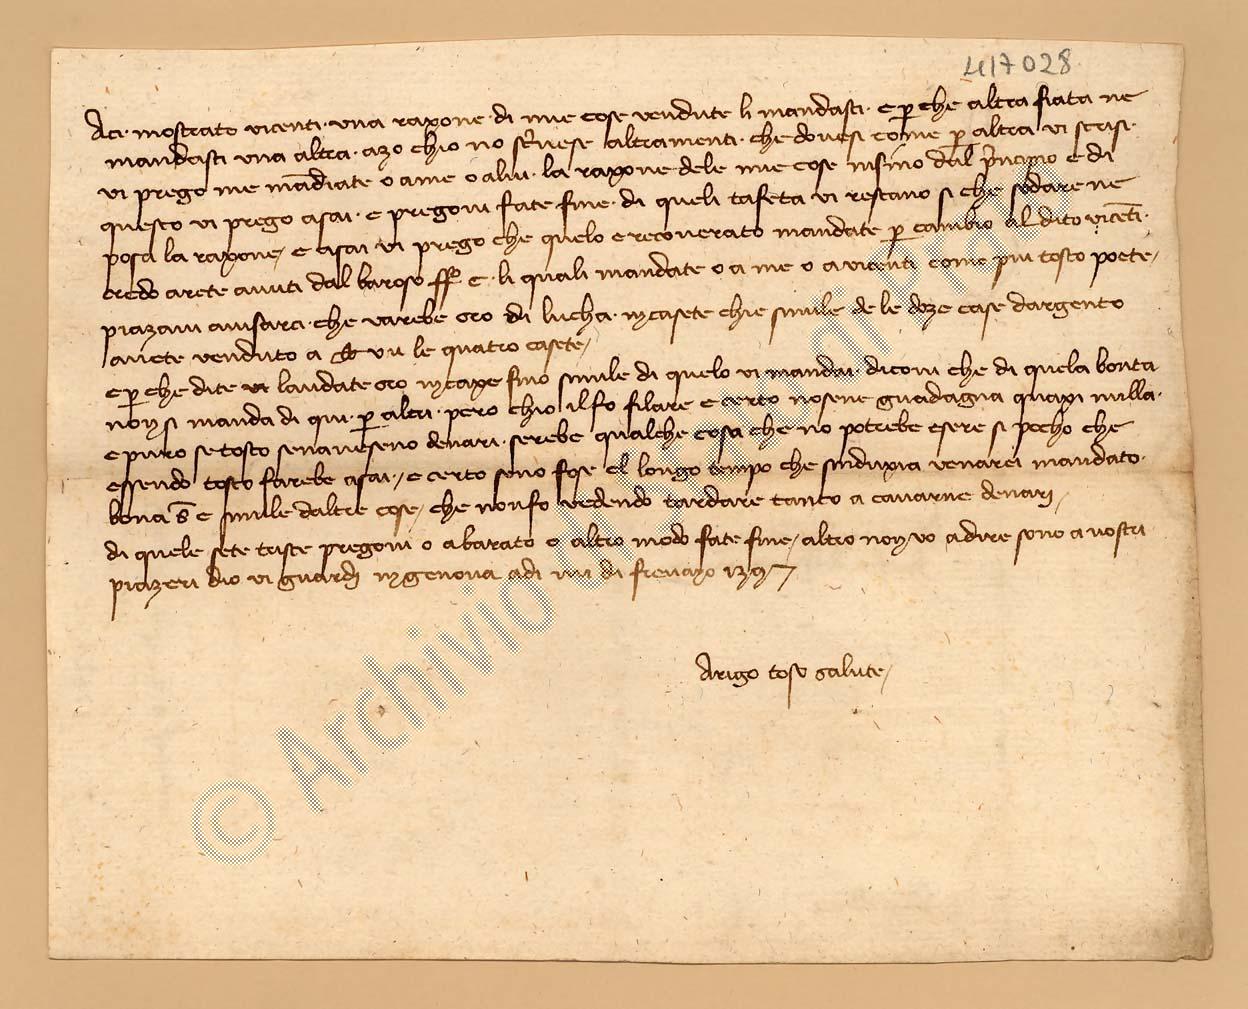 417028
Aci mostrato vicenti una raxone di mie cose vendute li mandasti e p che altra fiata ne
mandasti una altra azo chio no altramenti che dovesi come p altra vi scrisi
vi prego me mādiate o a me o a lui la raxone dele mie cose nisino dal p̄ncipio e di
questo vi prego asai e pregovi fate fine di queli tafeta vi restano si che sodare ne
posa la raxone e asai vi prego che quelo e recoverato mandate p cambio al dito vicēti
credo arete avuti dal baroso ff e li quali mandate o a me o a vicenti come piu tosto poete
piazavi avisarci che varebe oro di lucha in casete chie simile de le doze case dargento
avete venduto a vu le quatro casete
e p che dite vi laudate oro in caxe fino simile di quelo vi mandai dicovi che di quela bonta
non si manda di qui p altri pero chio il fo filare e certo no sene guadagna quaxi nulla
e puro se tosto senaveseno denari serebe qualche cosa che no potrebe esere si pocho che
essendo tosto farebe asai e certo seno fose el longo tempo che sinduxia venarei mandato
bona s e simile daltre cose che non fo vedendo tardare tanto a cavarne denari
di quele sete triste pregovi o a barato o altro modo fate fine altro non vo a dire sono a vostri
piazeri dio vi guardi in genova adi di frevayo 1397
Arigo tosi salute
© Archivio di